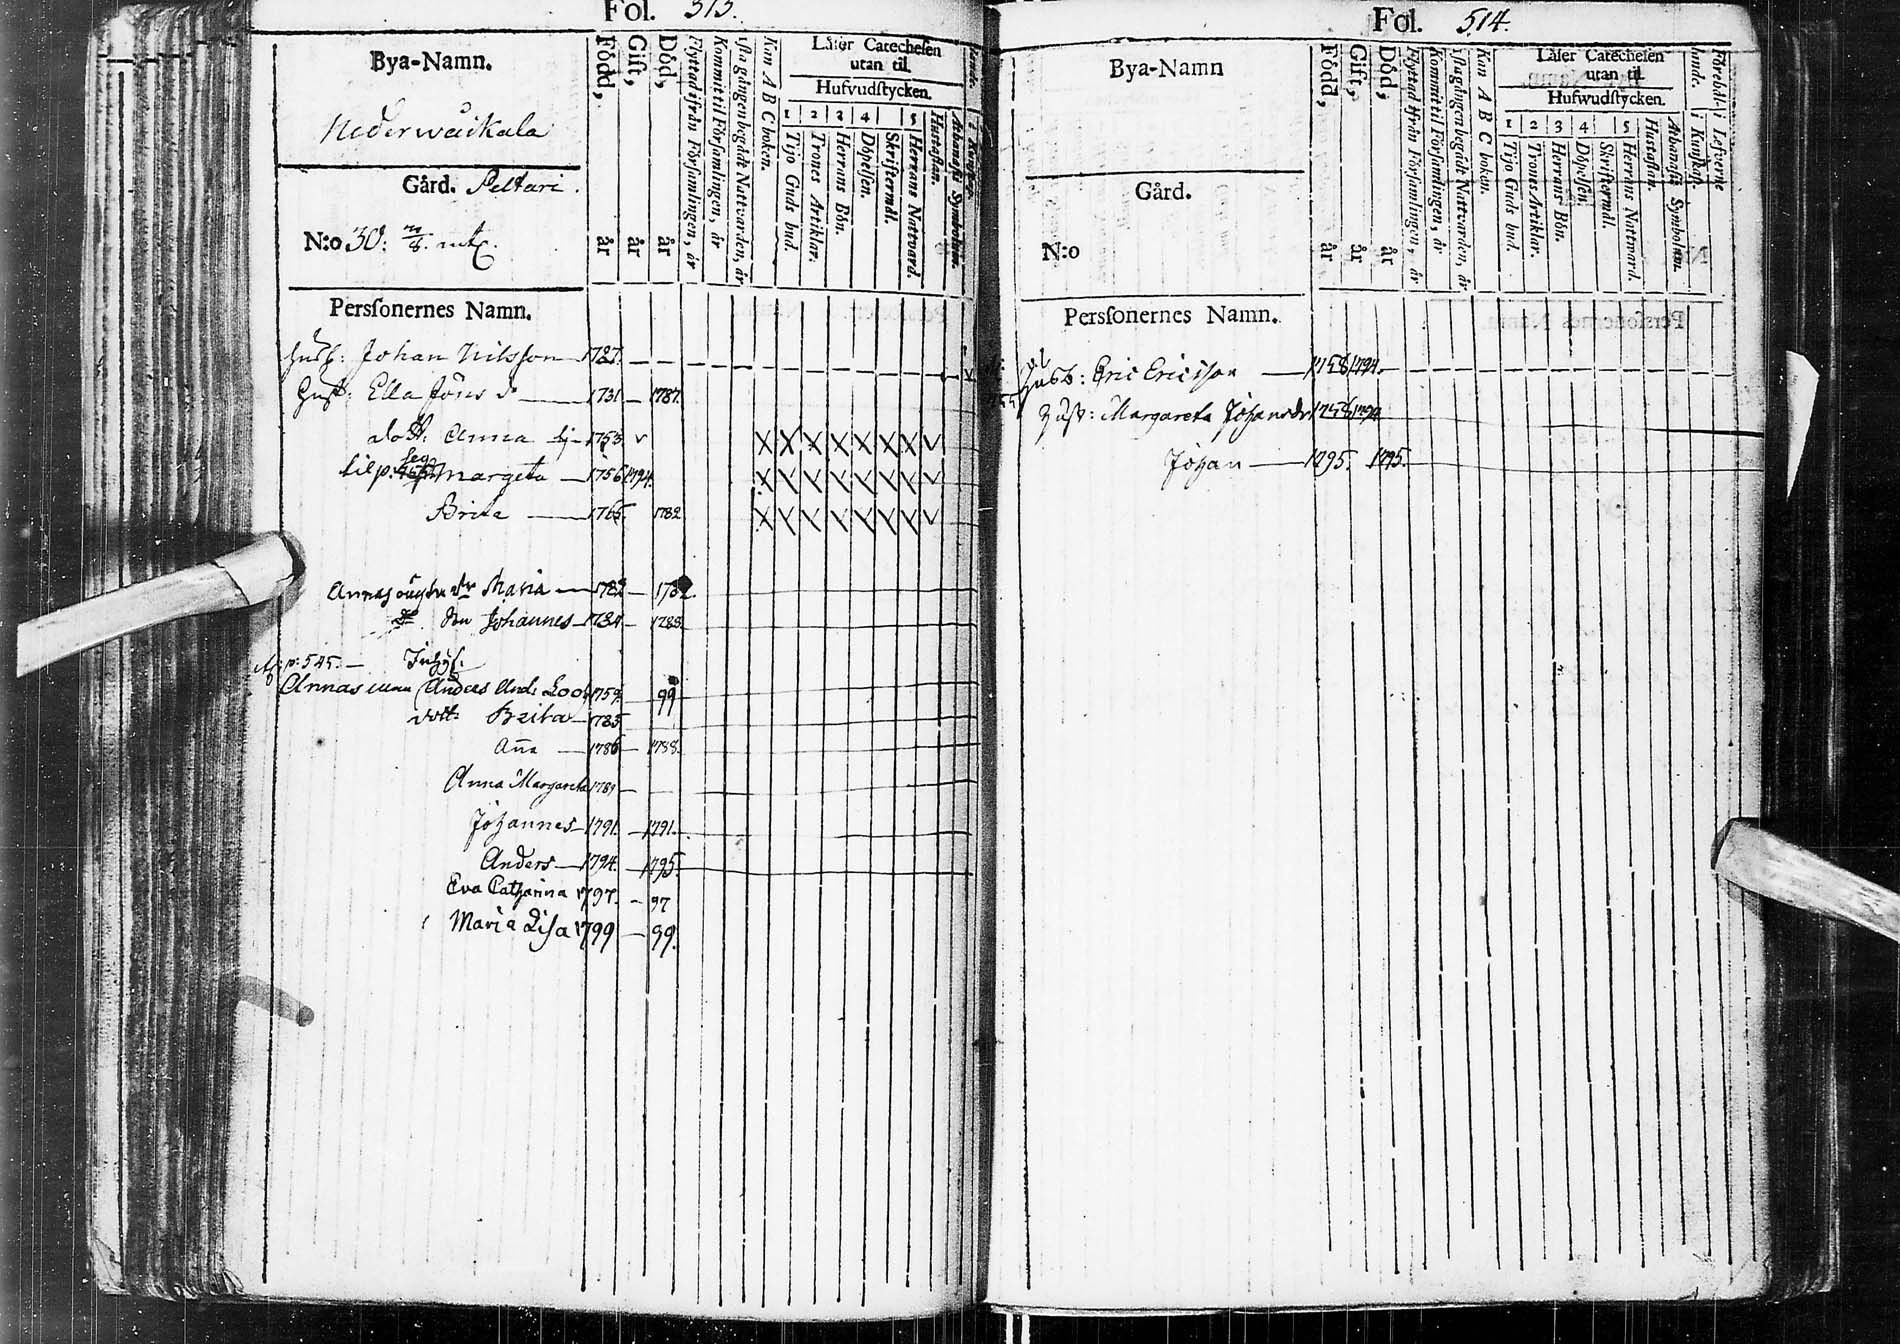 Fol. 513.
Bya-Namn.
Nederwäikala
Gård. Peltari.
N:o 30:
Född, år
Gift, år
Död, år
Flyttad ifrån Församlingen, år
Kommit til Församlingen, år
1sta gången begådt Nattvarden, år
Kan A B C boken.
Läser Catechesen
utan til.
Hufvudstycken.
1 2 3 4 5
Tijo Guds bud.
Trones Artiklar.
Herrans Bön.
Döpelsen.
Skriftermål.
Herrans Nattvard.
Hustaflan.
Athanasii Symbolum.
Personernes Namn.
Husb: Johan Nilsson 1727.
Hust: Ella Jöns dr 1731 — 1787.
dott: Anna 1753
Margeta 1756 1794.
Brita 1765. 1782
Annas dr Maria — 1782 —
do son Johannes — 1784 — 1788.
p: 545. — Inhys:
Annas man Anders And: Loo 1759. 99
dott: Breita — 1785
Aña — 1786 — 1788.
Anna Margareta 1789 —
Johannes — 1791. — 1791.
Anders — 1794. — 1795.
Eva Catharina 1797. — 97
Maria Lisa 1799 — 99.
Fol. 514.
Bya-Namn
Gård.
N:o
Född, år
Gift, år
Död, år
Flyttad ifrån Församlingen, år
Kommit til Församlingen, år
1sta gången begådt Nattvarden, år
Kan A B C boken.
Läser Catechesen
utan til.
Hufwudstycken.
1 2 3 4 5
Tijo Guds bud.
Trones Artiklar.
Herrans Bön.
Döpelsen.
Skriftermål.
Herrans Nattward.
Hustaflan.
Athanasii Symbolum.
i Kunskap.
i Lefverne
Personernes Namn.
Husb: Eric Ericsson — 1758 1794.
Hust: Margareta Johansdr 1756 1794
Johan — 1795. 1795.